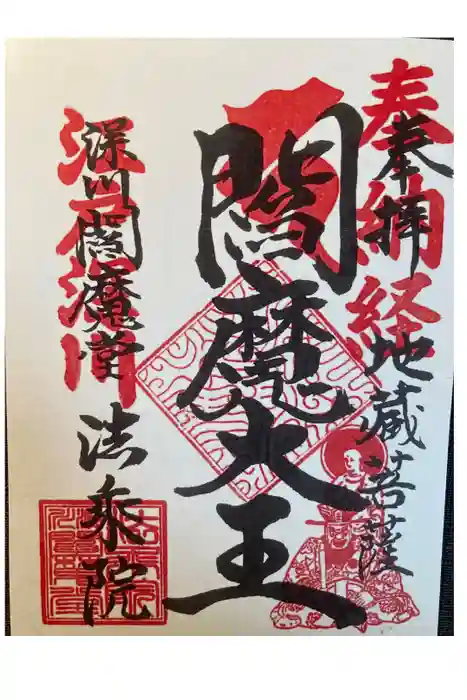 奉納経
奉拝
地蔵菩薩
閻魔大王
深川閻魔堂
法乗院